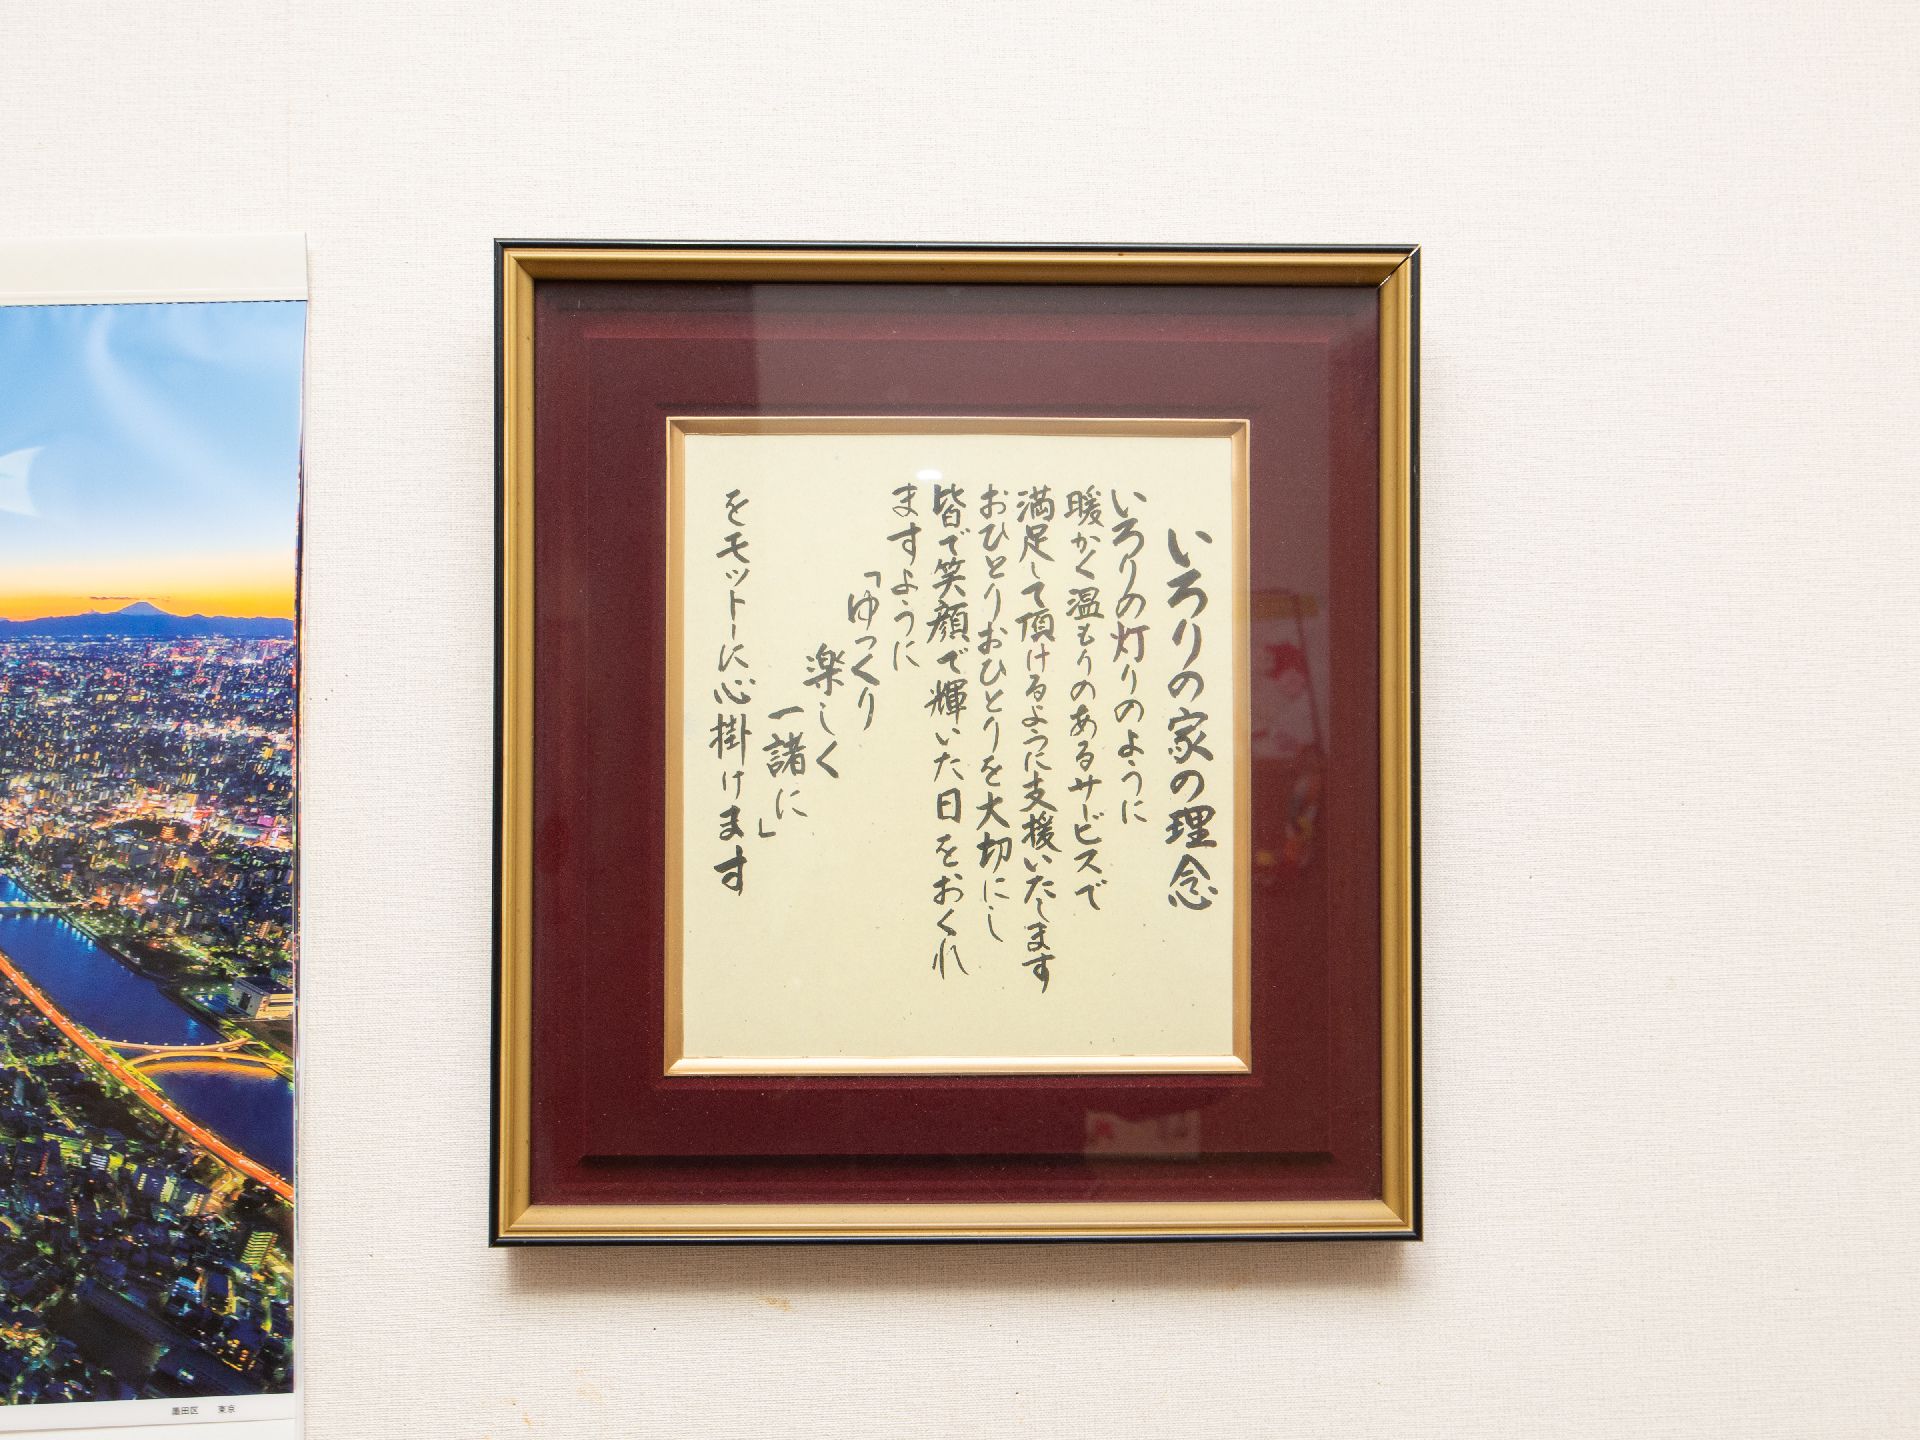 いろりの家の理念
いろりの灯りのように
暖かく温もりのあるサービスで
満足して頂けるように支援いたします
おひとりおひとりを大切にし
皆で笑顔で輝いた日をおくれ
ますように
「ゆっくり
楽しく
一諸に」
をモットーに心掛けます
墨田区 東京